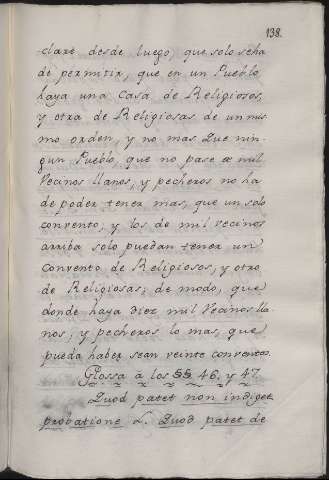 138.
clare desde luego, que solo se ha
de permitir, que en un Pueblo
haya una Casa de Religiosos,
y otra de Religiosas de un mis
mo orden, y no mas. Que nin-
gun Pueblo, que no pase de mil
Vecinos llanos, y pecheros no ha
de poder tener mas, que un solo
convento, y los de mil vecinos
arriba solo puedan tener un
Convento de Religiosos, y otro
de Religiosas; de modo, que
donde haya diez mil Vecinos lla
nos, y pecheros lo mas, que
pueda haber sean veinte conventos.
Glossa à los §§ 46, y 47.
Quod patet non indiget
probatione &. Quod patet de